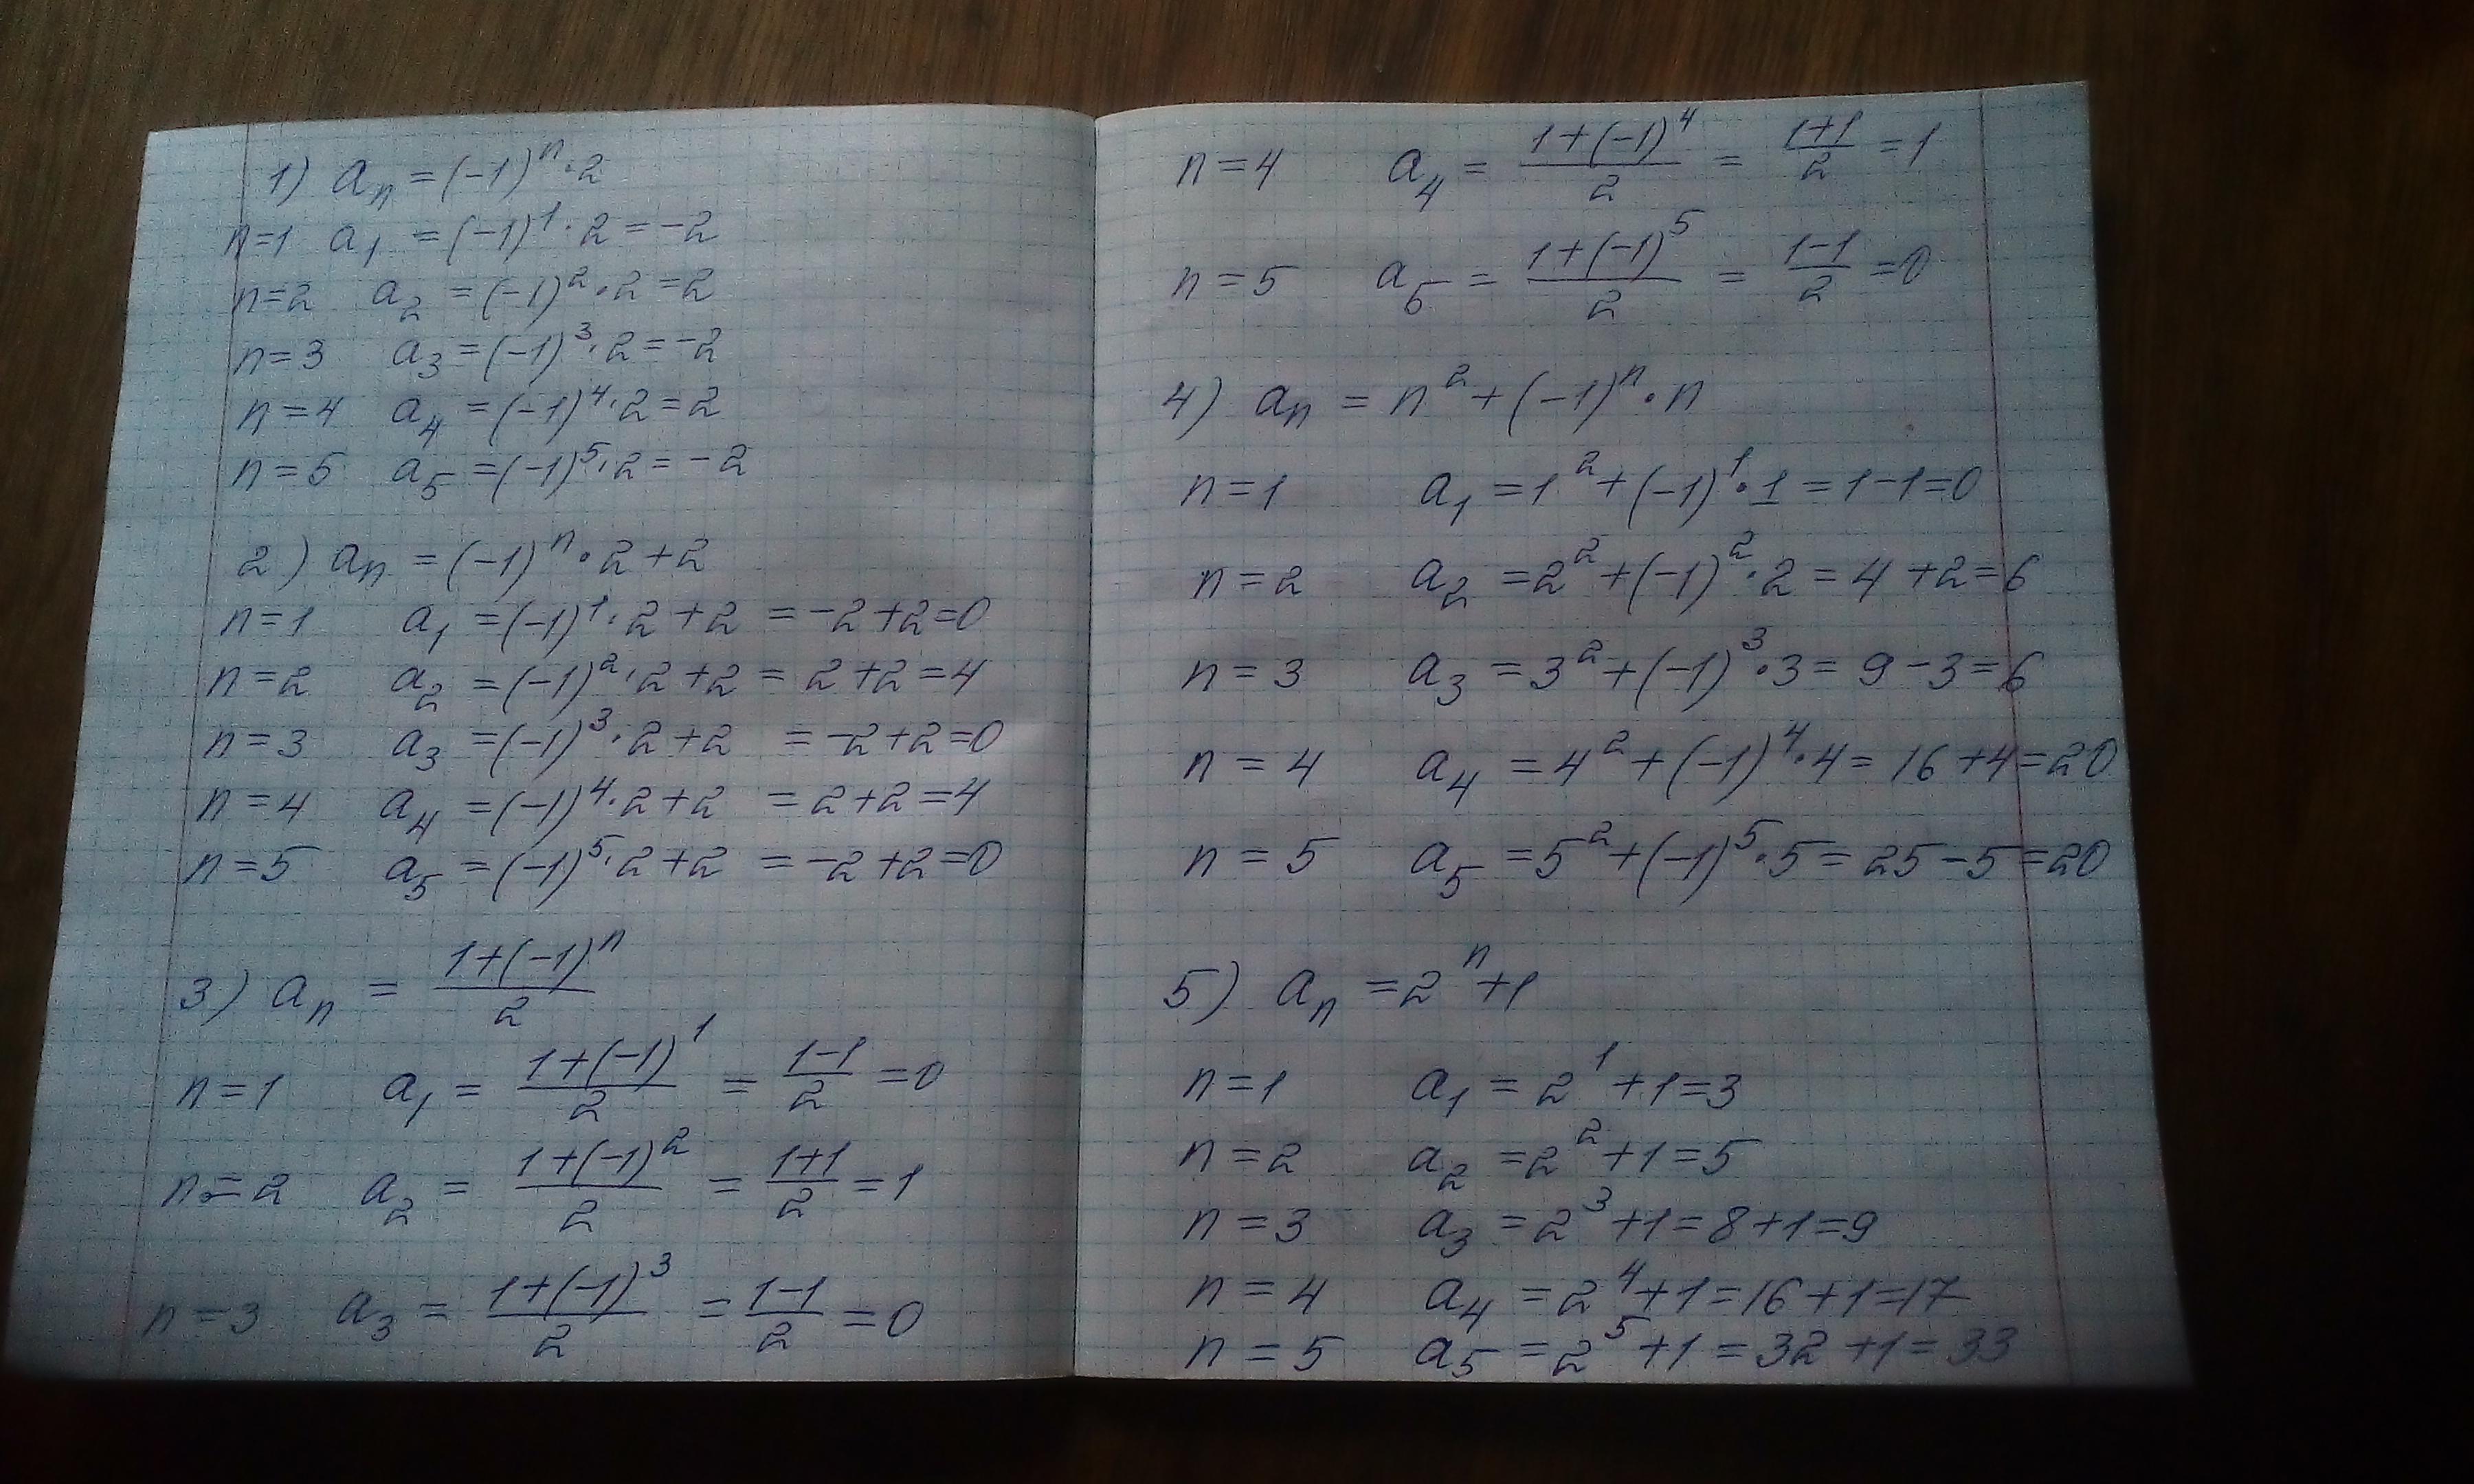 1) aₙ = (-1)ⁿ·2
n=1 a₁ = (-1)¹·2 = -2
n=2 a₂ = (-1)²·2 = 2
n=3 a₃ = (-1)³·2 = -2
n=4 a₄ = (-1)⁴·2 = 2
n=5 a₅ = (-1)⁵·2 = -2
2) aₙ = (-1)ⁿ·2+2
n=1 a₁ = (-1)¹·2+2 = -2+2=0
n=2 a₂ = (-1)²·2+2 = 2+2=4
n=3 a₃ = (-1)³·2+2 = -2+2=0
n=4 a₄ = (-1)⁴·2+2 = 2+2=4
n=5 a₅ = (-1)⁵·2+2 = -2+2=0
3) aₙ = (1+(-1)ⁿ)/2
n=1 a₁ = (1+(-1)¹)/2 = (1-1)/2 = 0
n=2 a₂ = (1+(-1)²)/2 = (1+1)/2 = 1
n=3 a₃ = (1+(-1)³)/2 = (1-1)/2 = 0
n=4 a₄ = (1+(-1)⁴)/2 = (1+1)/2 = 1
n=5 a₅ = (1+(-1)⁵)/2 = (1-1)/2 = 0
4) aₙ = n²+(-1)ⁿ·n
n=1 a₁ = 1²+(-1)¹·1 = 1-1=0
n=2 a₂ = 2²+(-1)²·2 = 4+2=6
n=3 a₃ = 3²+(-1)³·3 = 9-3=6
n=4 a₄ = 4²+(-1)⁴·4 = 16+4=20
n=5 a₅ = 5²+(-1)⁵·5 = 25-5=20
5) aₙ = 2ⁿ+1
n=1 a₁ = 2¹+1=3
n=2 a₂ = 2²+1=5
n=3 a₃ = 2³+1=8+1=9
n=4 a₄ = 2⁴+1=16+1=17
n=5 a₅ = 2⁵+1=32+1=33